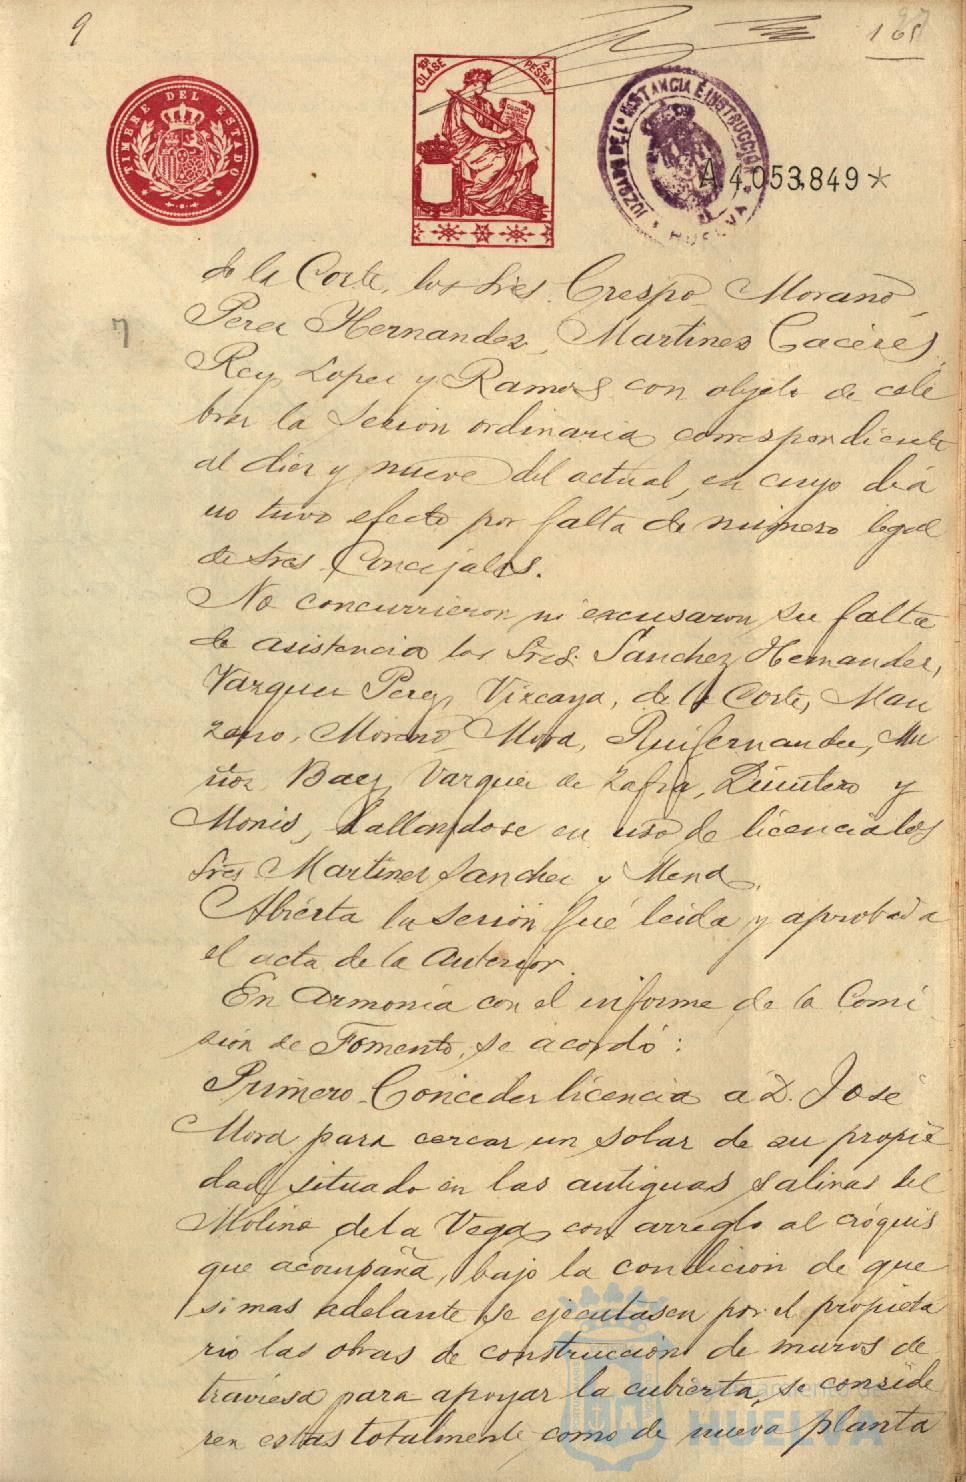 9
165
27
TIMBRE DEL ESTADO
10ª CLASE
2 PESetas
JUZGADO DE 1ª INSTANCIA É INSTRUCCION
HUELVA
A4.053,849*
7
de la Corte, los Sres. Crespo Morano,
Perez Hernandez, Martinez Caceres,
Rey, Lopez y Ramos con objeto de cele
brar la sesion ordinaria correspondiente
al diez y nueve del actual, en cuyo dia
no tuvo efecto por falta de número legal
de Sres. Concejales.
No concurrieron ni excusaron su falta
de asistencia los Sres. Sanchez Hernandez,
Vazquez Perez, Vizcaya, de la Corte, Man
zano, Moreno Mora, Ruifernandez, Mu
ñoz, Baez, Vazquez de Zafra, Quintero y
Monis, hallandose en uso de licencia los
Sres. Martinez Sanchez y Mena.
Abierta la sesion fué leida y aprobada
el acta de la anterior.
En armonía con el informe de la Comi
sion de Fomento, se acordó:
Primero. Conceder licencia á D. José
Mora para cercar un solar de su propie
dad situado en las antiguas salinas del
Molino de la Vega con arreglo al cróquis
que acompaña, bajo la condicion de que
si mas adelante se ejecutasen por el propieta
rio las obras de construccion de muros de
traviesa para apoyar la cubierta, se conside
ren estas totalmente como de nueva planta
Ayuntamiento de
HUELVA